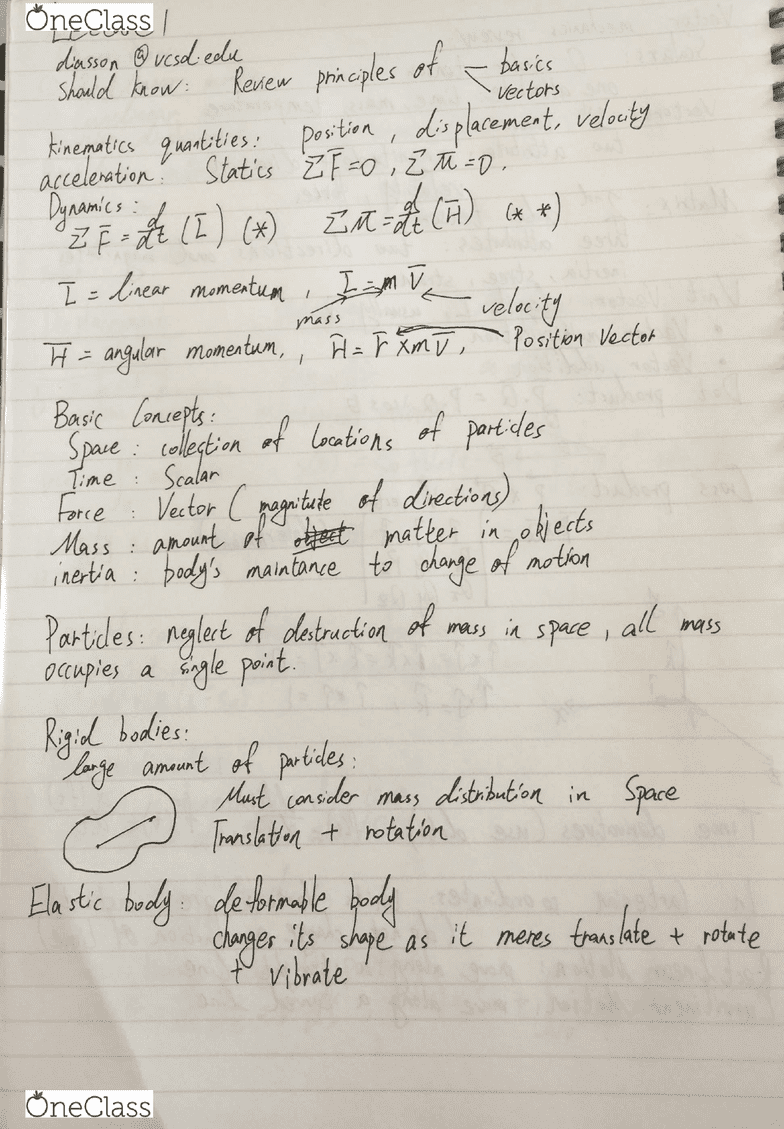 OneClass
diasson@ucsd.edu
Should know: Review principles of basics
vectors
kinematics quantities: position, displacement, velocity
acceleration. Statics Σ F̄=0, Σ M̄=0.
Dynamics:
Σ F̄ = d/dt (L̄) (*) Σ M̄ = d/dt (H̄) (* *)
L̄ = linear momentum, L̄ = m V̄
mass velocity
H̄ = angular momentum,, H̄ = r̄ x m V̄, Position Vector
Basic Concepts:
Space: collection of locations of particles
Time: Scalar
Force: Vector (magnitute of directions)
Mass: amount of object matter in objects
inertia: body's maintance to change of motion
Particles: neglect of destruction of mass in space, all mass
occupies a single point.
Rigid bodies:
large amount of particles:
Must consider mass distribution in Space
Translation + rotation
Elastic body: deformable body
changes its shape as it meres translate + rotate
+ vibrate
OneClass